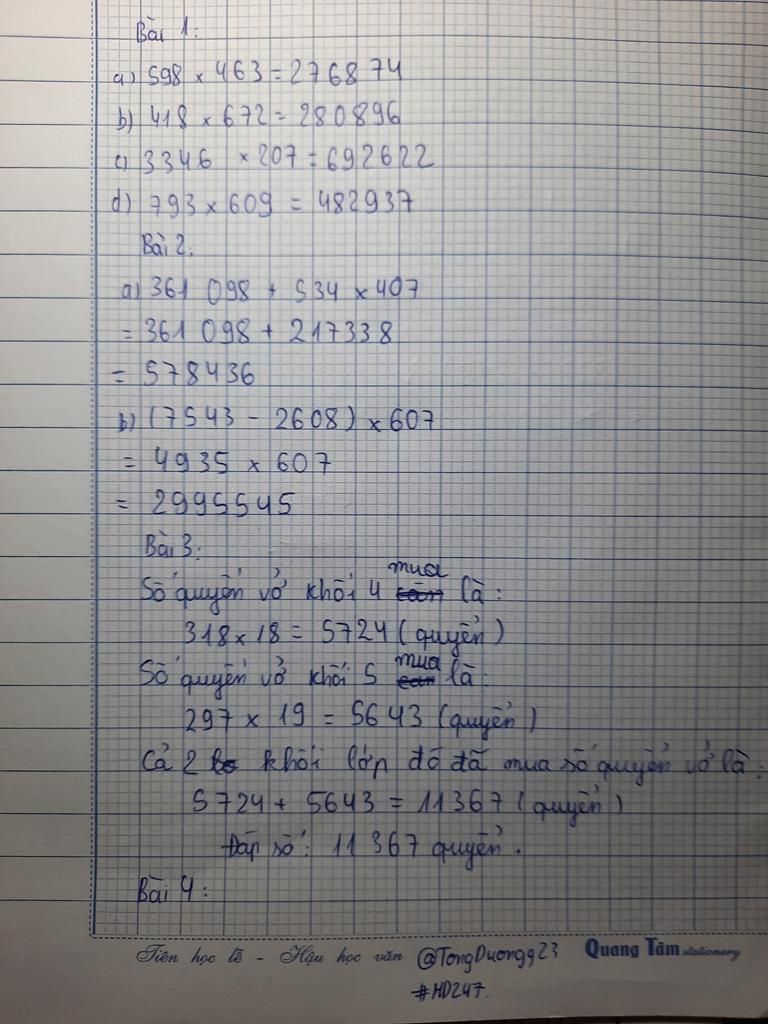 Bài 1:
a) 598 x 463 = 276874
b) 418 x 672 = 280896
c) 3346 x 207 = 692622
d) 793 x 609 = 482937
Bài 2:
a) 361 098 + 534 x 407
= 361 098 + 217338
= 578436
b) (7543 - 2608) x 607
= 4935 x 607
= 2995545
Bài 3:
Số quyển vở khối 4 mua là:
318 x 18 = 5724 (quyển)
Số quyển vở khối 5 mua là:
297 x 19 = 5643 (quyển)
Cả 2 khối lớp đó đã mua số quyển vở là:
5724 + 5643 = 11367 (quyển)
Đáp số: 11 367 quyển.
Bài 4:
Tiên học lễ - Hậu học văn @TongDuongg23 Quang Tâm stationery
#HD247.